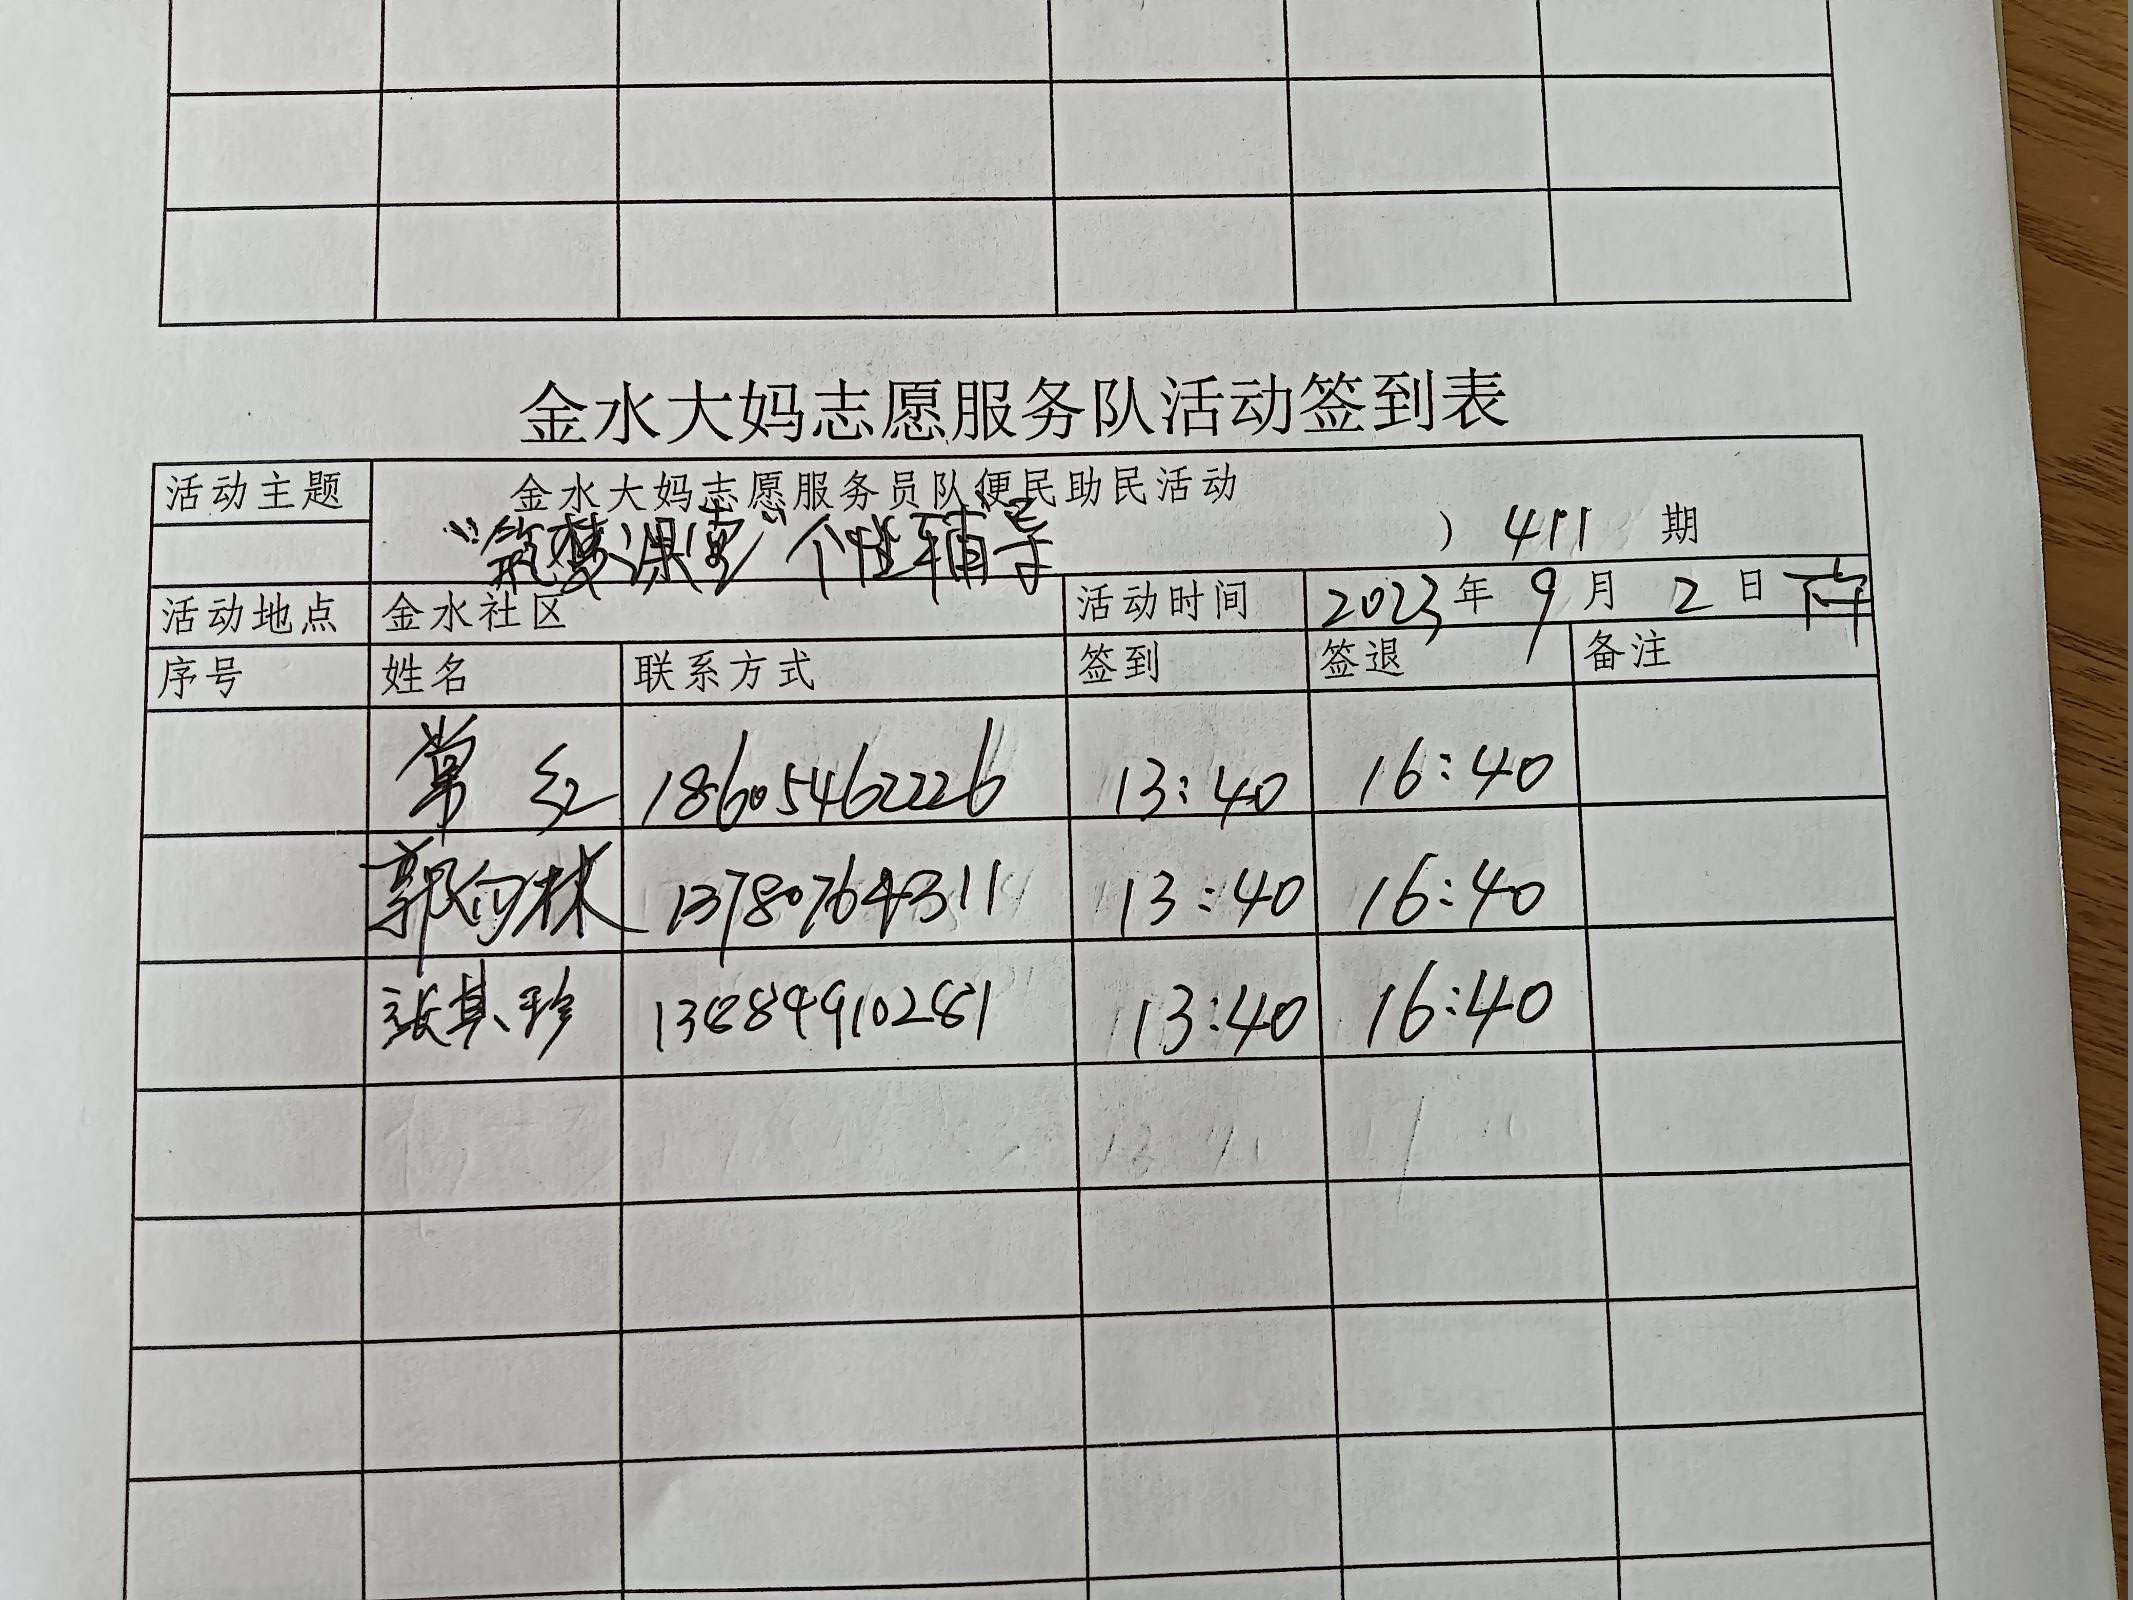 金水大妈志愿服务队活动签到表
活动主题 金水大妈志愿服务员队便民助民活动
“筑梦课堂”个性辅导 ) 411 期
活动地点 金水社区 活动时间 2023年 9月 2日 下午
序号 姓名 联系方式 签到 签退 备注
常红 18605462226 13:40 16:40
郭向林 13780764311 13:40 16:40
张其珍 13:40 16:40